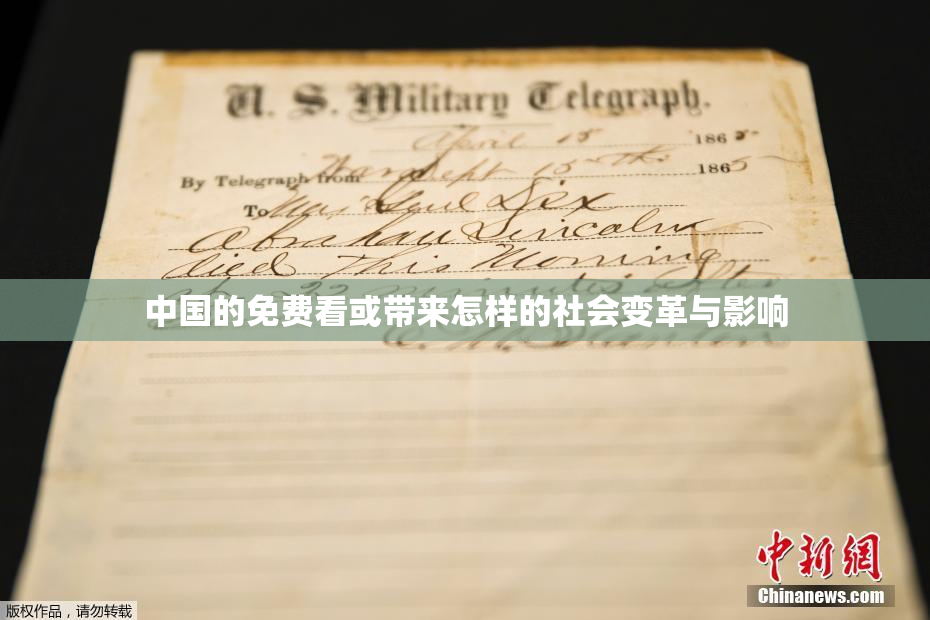 U. S. Military Telegraph.
April 15 1865-
By Telegraph from War Dept 15th 1865
To Maj Genl Dix
Abraham Lincoln
died This Morning
22 minutes after
中国的免费看或带来怎样的社会变革与影响
E. M. Stanton
中新網
Chinanews.com
版权作品，请勿转载